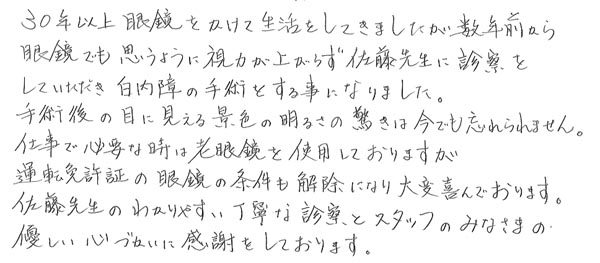 30年以上眼鏡をかけて生活をしてきましたが数年前から
眼鏡でも思うように視力が上がらず佐藤先生に診察を
していただき白内障の手術をする事になりました。
手術後の目に見える景色の明るさの驚きは今でも忘れられません。
仕事で必要な時は老眼鏡を使用しておりますが
運転免許証の眼鏡の条件も解除になり大変喜んでおります。
佐藤先生のわかりやすい丁寧な診察とスタッフのみなさまの
優しい心づかいに感謝をしております。